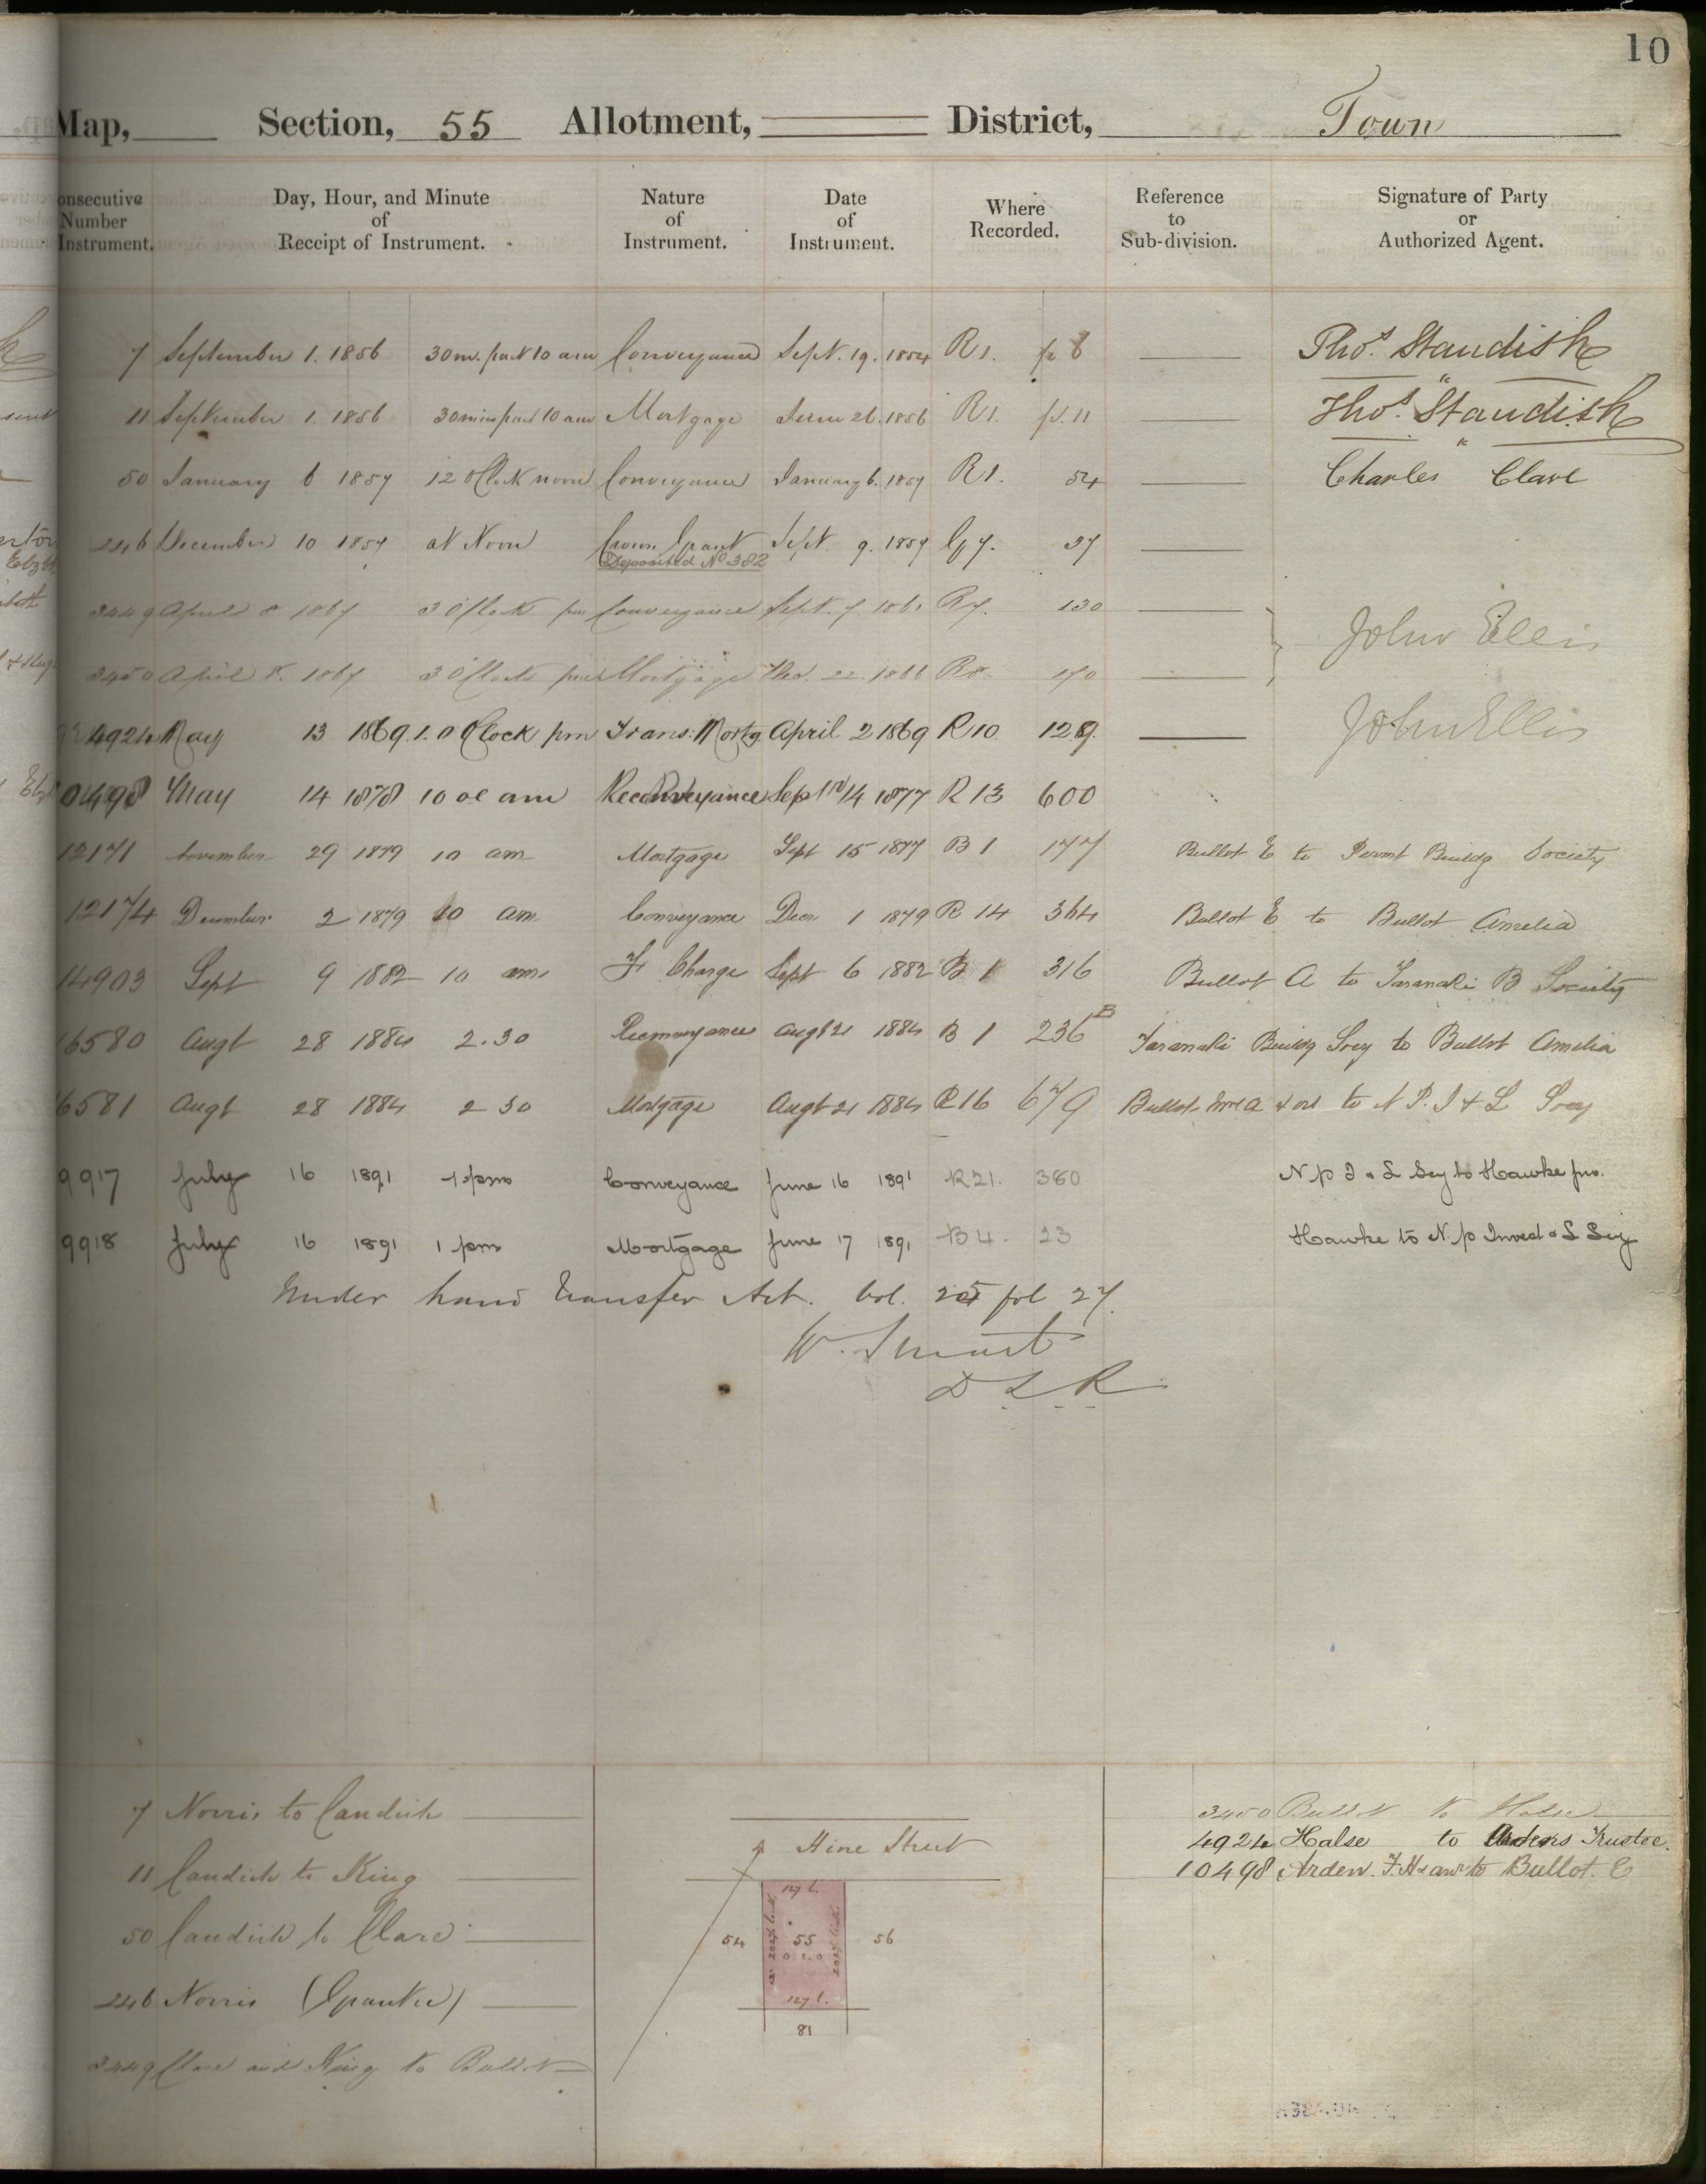 10
Map, Section, 55 Allotment, District, Town
onsecutive Number Instrument.
Day, Hour, and Minute of Receipt of Instrument.
Nature of Instrument.
Date of Instrument.
Where Recorded.
Reference to Sub-division.
Signature of Party or Authorized Agent.
7 September 1. 1856 30 m. past 10 am Conveyance Sept. 19. 1854 R 1. p 8 Thos. Standish
11 September 1. 1856 30 min past 10 am Mortgage 26. 1856 R 1. p. 11 Thos. Standish
50 January 6 1857 12 OClock noon Conveyance January 6. 1857 R 1. 54 Charles Clare
246 December 10 1857 at Noon Crown Grant Sept 9. 1857 37
Deposited No 382
3449 April 8 1867 3 OClock pm Conveyance Sept. 7. 186 R 7. 130 John Ellis
3450 April 8. 1867 3 OClock pm Mortgage 22. 1866 R 8. 170
4924 May 13 1869 1.0 Clock pm Trans: Mortg. April 2 1869 R 10. 129. John Ellis
0498 May 14 1878 10 oc am Reconveyance Sep 14 1877 R 13 600
12171 November 29 1879 10 am Mortgage Sept 15 1877 B 1 177 Bullot E to Permt Buildg Society
12174 December 2 1879 10 am Conveyance Decr 1 1879 R 14 364 Bullot E to Bullot Amelia
14903 Sept 9 1882 10 am F Charge Sept 6 1882 B 1 316 Bullot A to Taranaki B Society
6580 Augt 28 1884 2.30 Reconveyance Augt 21 1884 B 1 236 B Taranaki Buildg Socy to Bullot Amelia
6581 Augt 28 1884 2 30 Mortgage Augt 21 1884 R 16 679 Bullot A to N P. I & L Socy
9917 July 16 1891 1 pm Conveyance June 16 1891 R 21. 360 N P I & L Socy to Hawke jnr.
9918 July 16 1891 1 pm Mortgage June 17 1891 B 4. 23 Hawke to N. P Invest & L Socy
Under Land Transfer Act. Vol. 25 fol 27.
W. Stuart
D L R
7 Norris to Candish
11 Candish to King
50 Candish to Clare
246 Norris (Grantee)
3449 Clare and King to Bullot
Hine Street
127 l.
54 55 56
0.1.0
127 l.
81
3450 Bullot to Halse
4924 Halse to Ardens Trustee.
10498 Arden. F.H to Bullot. E